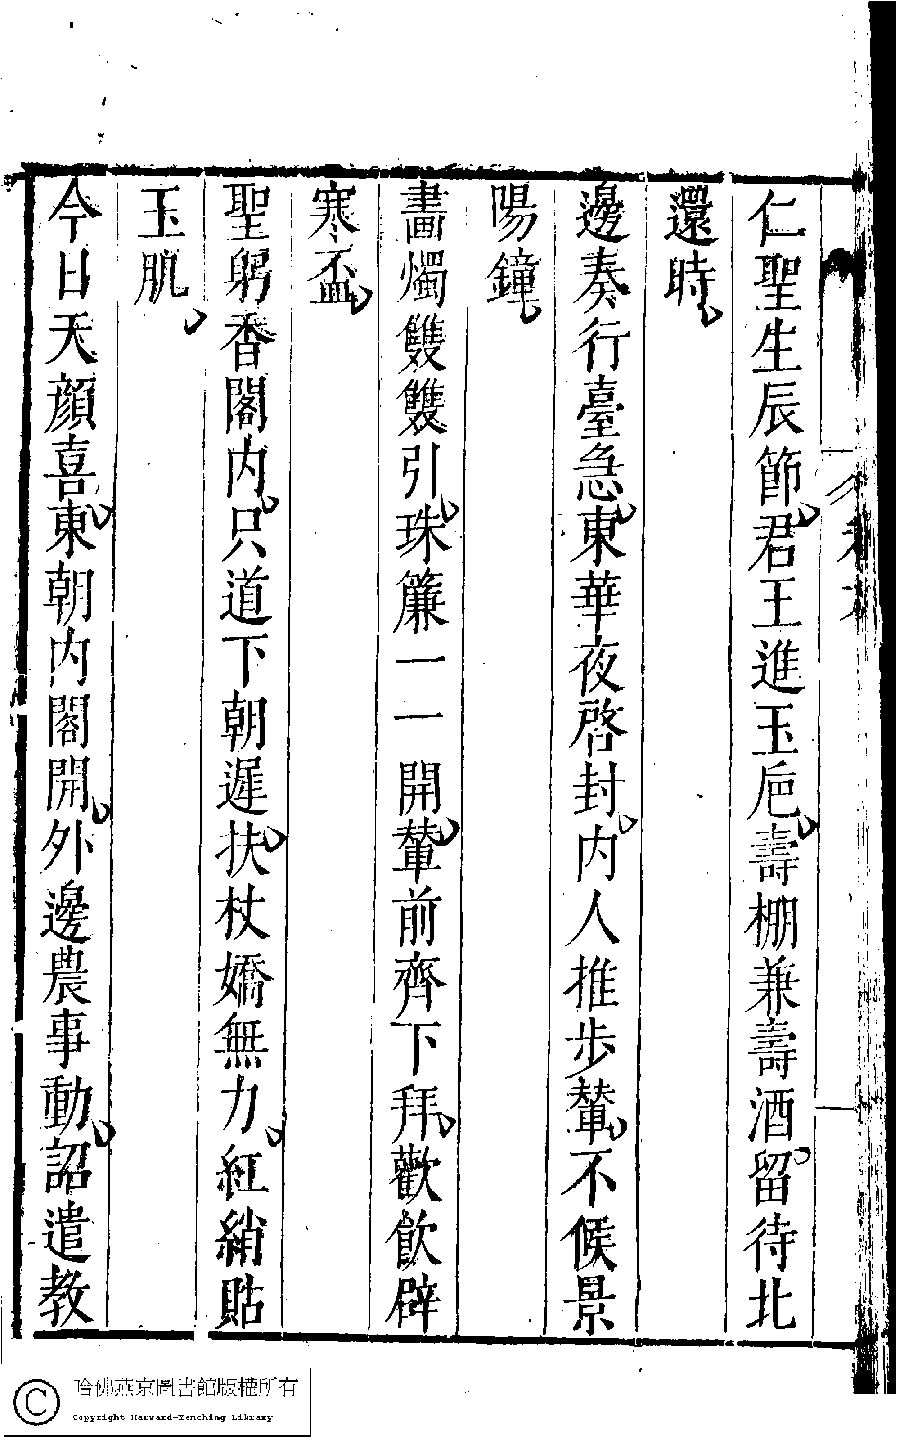 仁聖生辰節君王進玉巵壽棚兼壽酒留待北
還時
邊奏行臺急東華夜啓封內人推步輦不候景
陽鐘
畫燭雙雙引珠簾一一開輦前齊下拜歡飲辟
寒盃
聖躬香閣內只道下朝遲扶杖嬌無力紅綃貼
玉肌
今日天顏喜東朝內閣開外邊農事動詔遣教
哈佛燕京圖書館版權所有
Copyright Harvard-Yenching Library